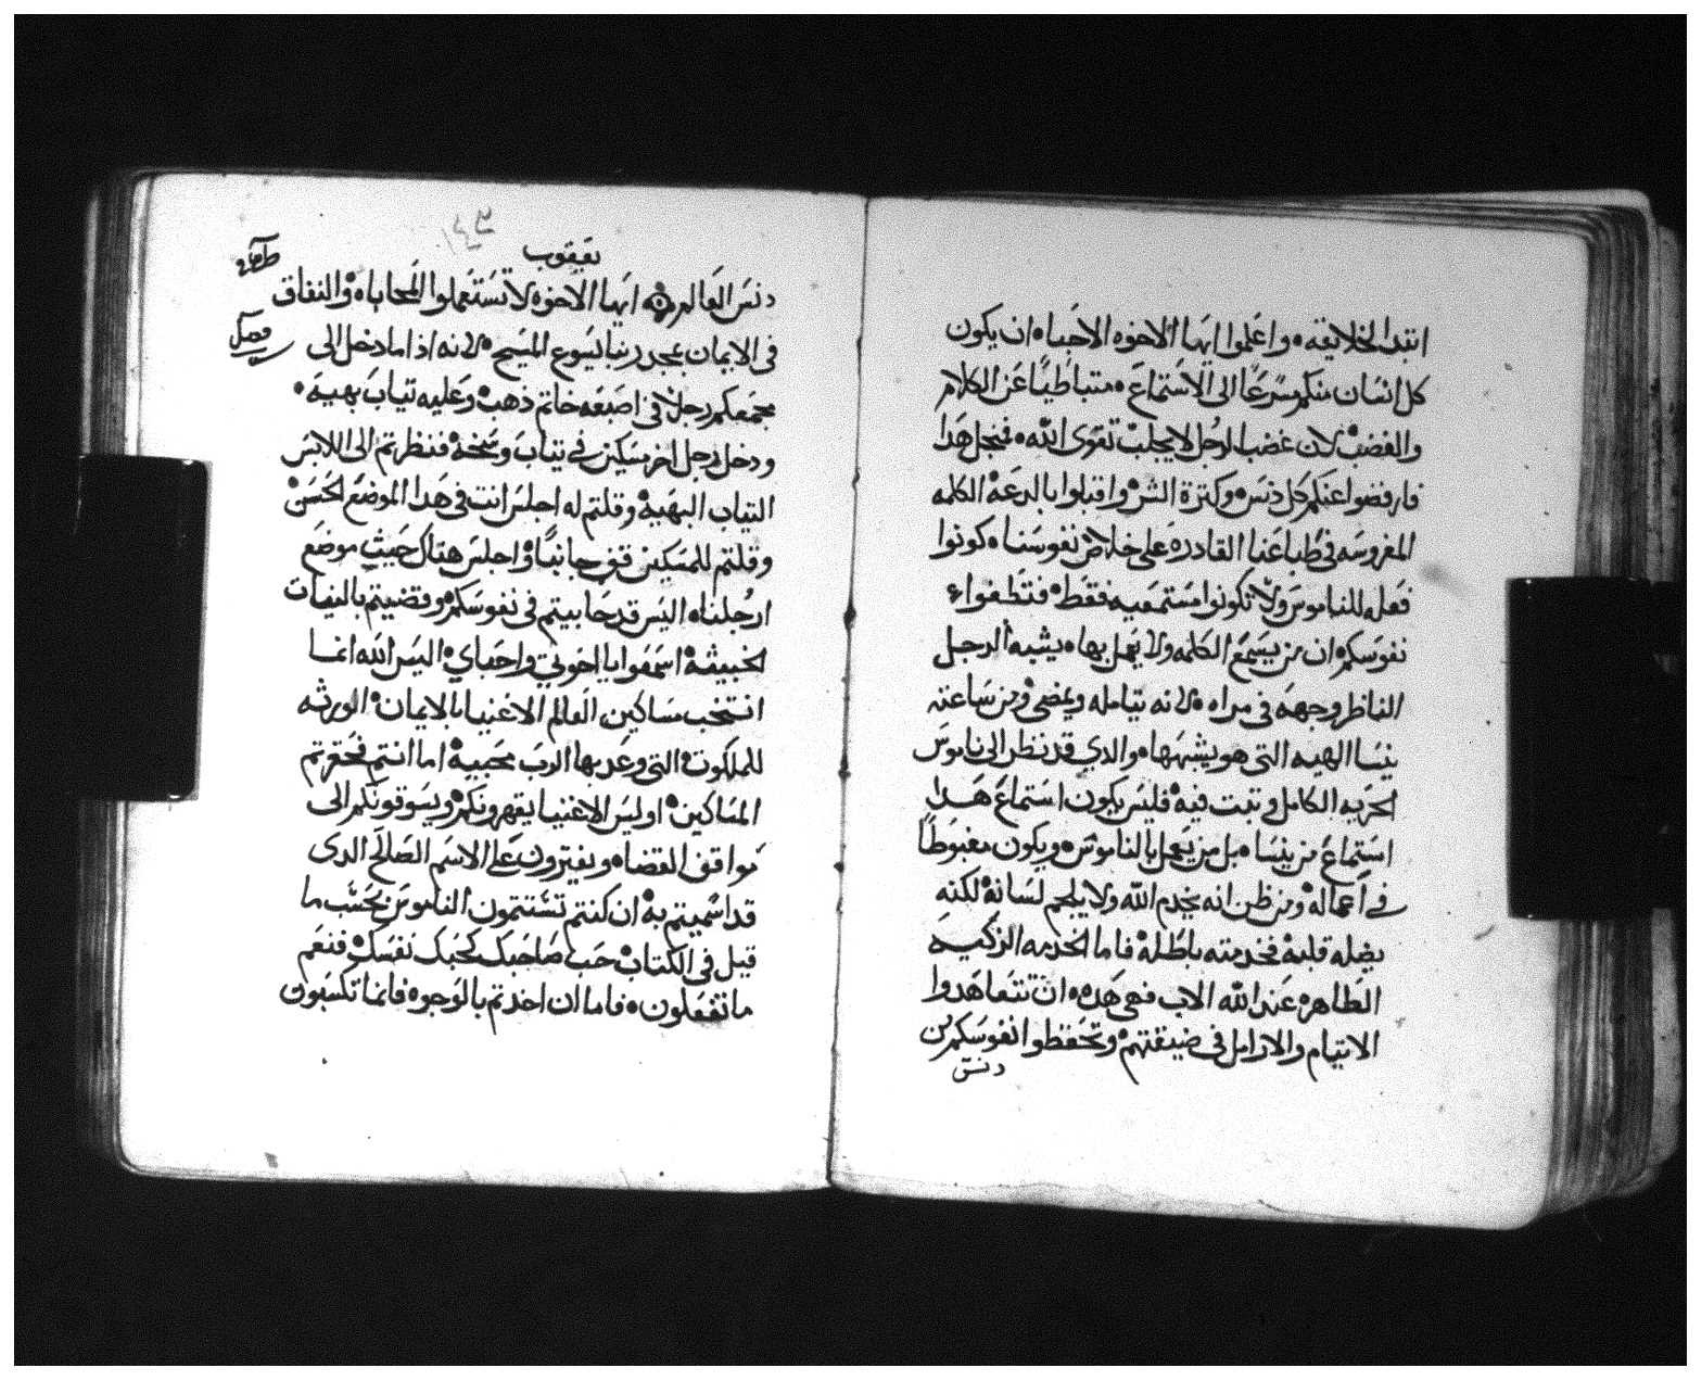 ابتدا لخلايقه ۰ واعلموا ايها الاخوه الاحبا ۰ ان يكون
كل انسان منكم مسرعًا الى الاستماع ۰ متباطيًا عن الكلام
والغضب ۰ لان غضب الرجل لا يجلب تقوى الله ۰ فنجل هدا
فارفضوا عنكم كل دنس ۰ وكترة الشر ۰ واقبلوا بالدعه الكلمه
المغروسه في طباعنا القادره على خلاص نفوسنا ۰ كونوا
فعله للناموس ولا تكونوا مستمعيه فقط ۰ فتطغوا
نفوسكم ۰ ان من يسمع الكلمه ولا يعمل بها ۰ يشبه الرجل
الناظر وجهه في مراه ۰ لانه يتامله ويمضي ۰ ومن ساعته
ينسا الهيه التي هو يشبهها ۰ والدي قد نظر الى ناموس
الحريه الكامل وتبت فيه ۰ فليس يكون استماع هدا
استماع من ينسا ۰ بل من يعمل بالناموس ۰ ويكون مغبوطًا
في اعماله ۰ ومن ظن انه يخدم الله ولا يلجم لسانه ۰ لكنه
يضله قلبه ۰ فخدمته باطله ۰ فاما الخدمه الزكيه
الطاهره عند الله الاب فهي هده ۰ ان تتعاهدوا
الايتيام والارامل في ضيقتهم ۰ وتحفظوا نفوسكم من
دنس
يعقوب
١٤٣
دنس العالم ۰ ايها الاخوه لا تستعملوا المحاباه ۰ والنفاق
فصل
في الايمان بمجد ربنا يسوع المسيح ۰ لانه اذا ما دخل الى
مجمعكم رجلًا في اصبعه خاتم ذهب ۰ وعليه تياب بهيه ۰
ودخل رجل اخر مسكين في تياب وسخه ۰ فنظرتم الى اللابس
التياب البهيه ۰ وقلتم له اجلس انت في هدا الموضع الحسن ۰
وقلتم للمسكين قف جانبًا ۰ او اجلس هناك حيث موضع
ارجلنا ۰ اليس قد حابيتم في نفوسكم ۰ وقضيتم بالنيات
الخبيثه ۰ اسمعوا يا اخوتي واحباي ۰ اليس الله انما
انتخب مساكين العالم الاغنيا بالايمان ۰ الورثه
للملكوت ۰ التي وعد بها الرب محبيه ۰ اما انتم فحقرتم
المساكين ۰ اوليس الاغنيا يقهرونكم ۰ ويسوقونكم الى
مواقف القضاه ۰ ويفترون على الاسم الصالح الدي
قد اسميتم به ۰ ان كنتم تشتتمون الناموس بحسب ما
قيل في الكتاب ۰ حب صاحبك كحبك نفسك ۰ فنعم
ما تفعلون ۰ فاما ان اخدتم بالوجوه فانما تكسبون